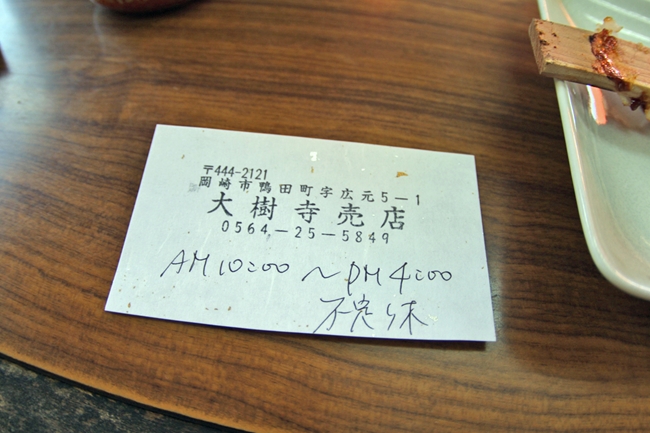 〒444-2121
岡崎市鴨田町字広元5-1
大樹寺売店
0564-25-5849
AM10:00 〜 PM4:00
不定休